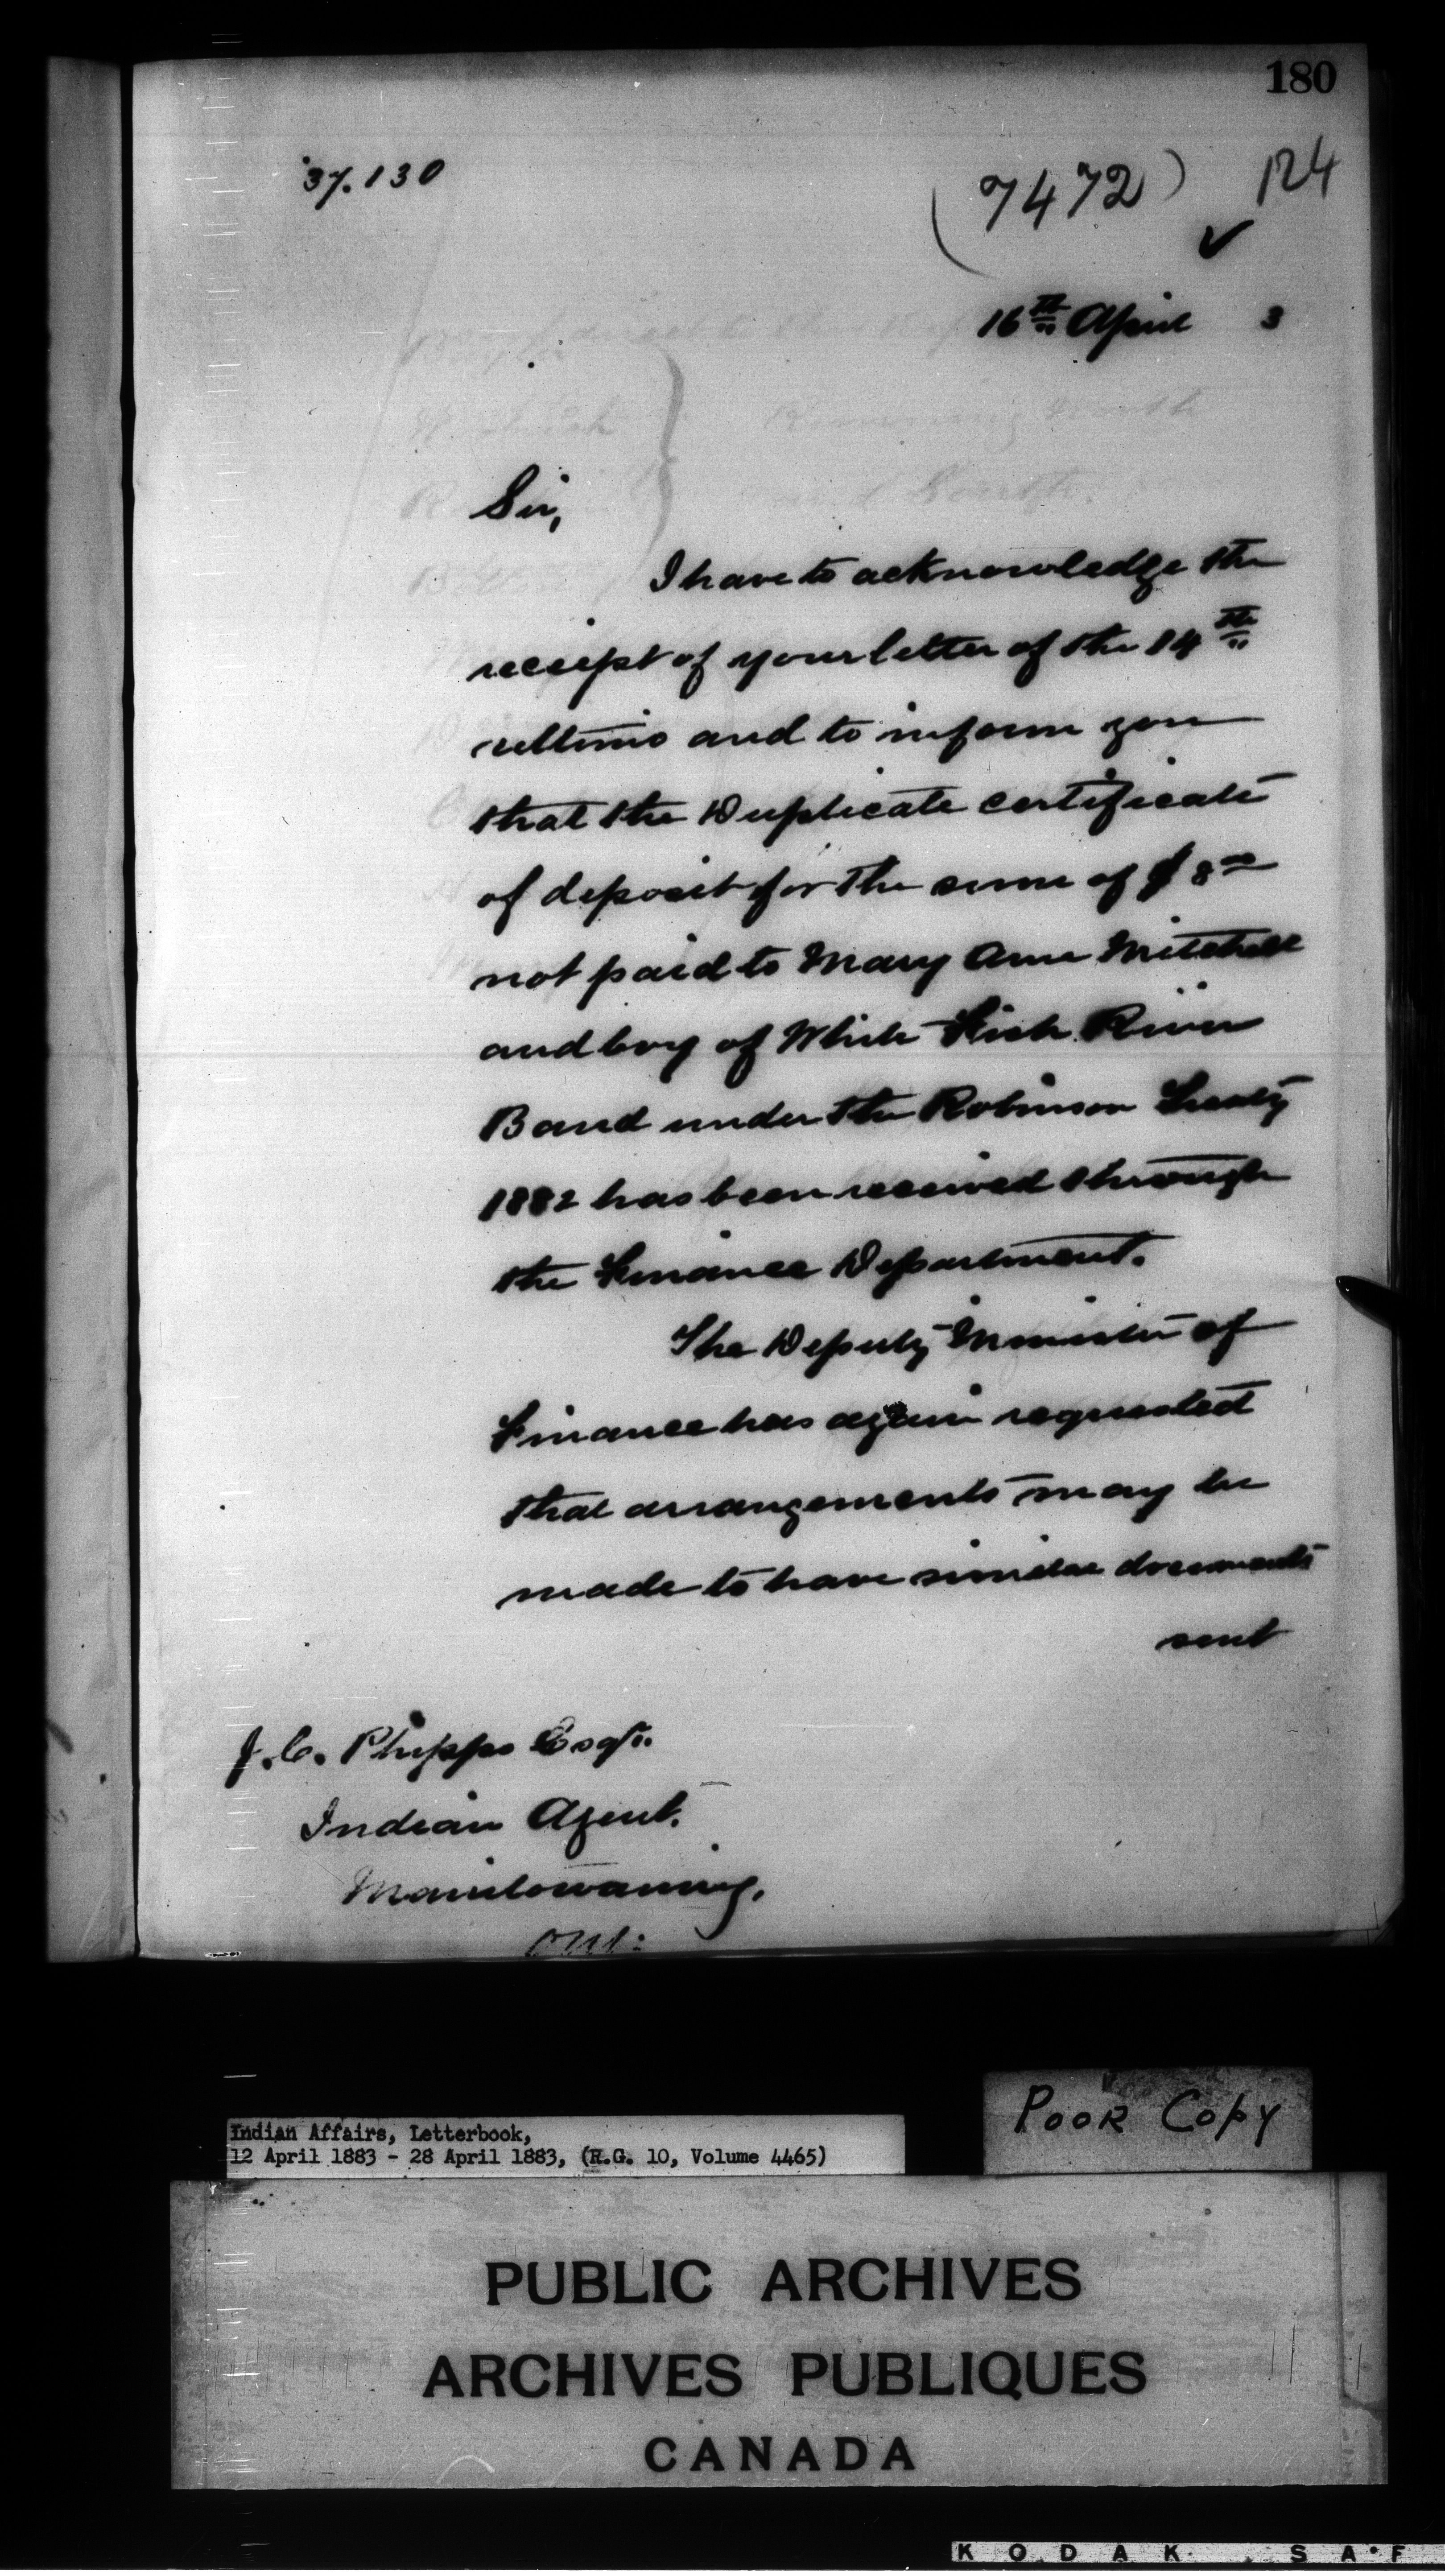 180
37.130
(7472)
124
16th April 3
Sir,
I have to acknowledge the
receipt of your letter of the 14th
ultimo and to inform you
that the Duplicate certificate
of deposit for the sum of $8
not paid to Mary Ann Mitchell
and boy of White Fish River
Band under the Robinson Treaty
1882 has been received through
the Finance Department.
The Deputy Minister of
Finance has again requested
that arrangements may be
made to have similar documents
sent
J.C. Phipps Esqr.
Indian Agent.
Manitowaning,
Ont:
Poor Copy
Indian Affairs, Letterbook,
12 April 1883 - 28 April 1883, (R.G. 10, Volume 4465)
PUBLIC ARCHIVES
ARCHIVES PUBLIQUES
CANADA
KODAK SAF